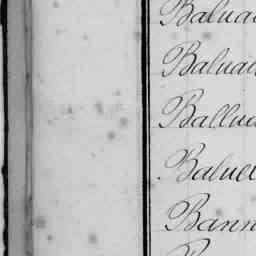 Balua
Balua
Ballu
Balue
Bann